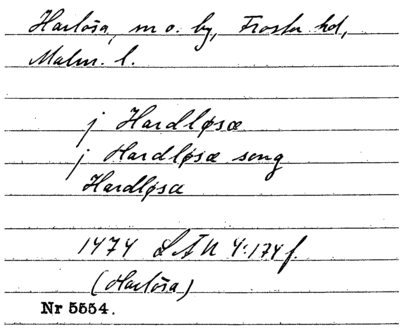 Harlösa, m o. by, Frosta hd,
Malm. l.
j Hardløsæ
j Hardløsæ song
Hardløsæ
1474 LÄU 4:174 f.
(Harlösa)
Nr 5554.